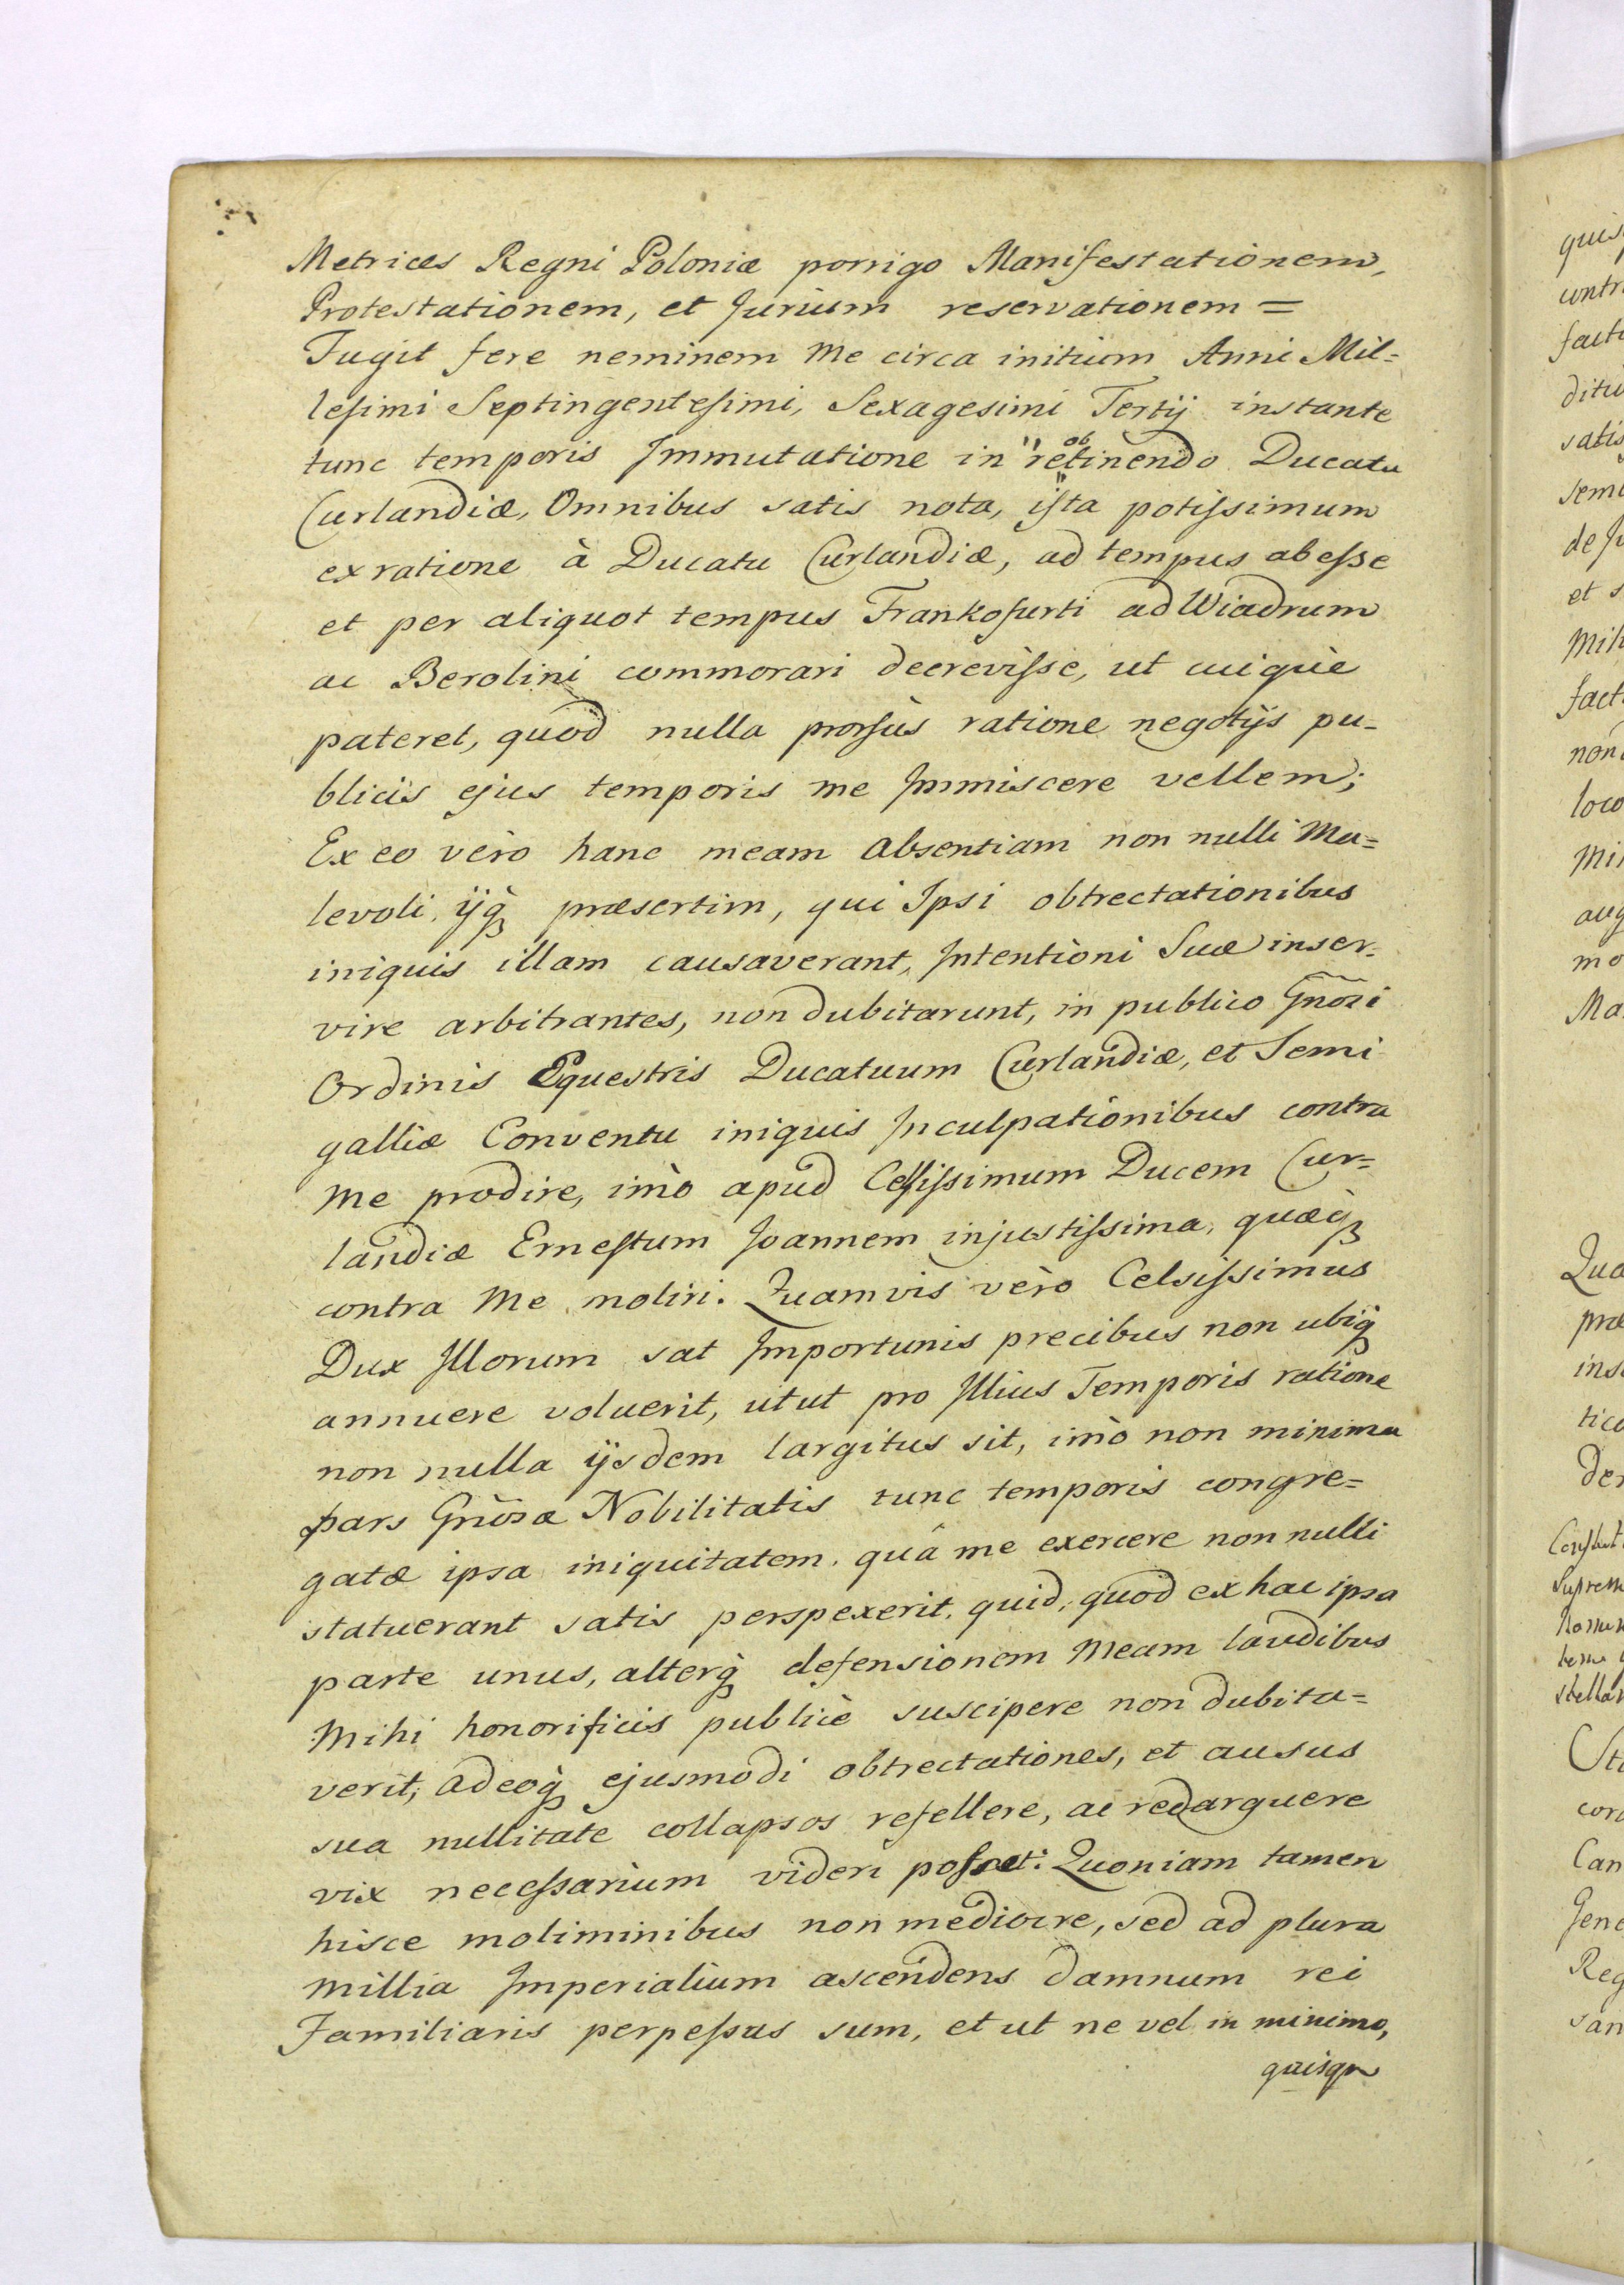 Metrices Regni Poloniæ porrigo Manifestationem,
Protestationem, et Jurium reservationem =
Fugit fere neminem me circa initium Anni Mil=
leſimi Septingenteſimi, Sexagesimi Tertij instante
tunc temporis Jmmutatione in "retinendo" ob Ducatu
Curlandiæ, Omnibus satis nota, iſta potiſsimum
ex ratione à Ducatu Curlandiæ, ad tempus abeſse
et per aliquot tempus Frankofurti ad Wiadrum
ac Berolini commorari decreviſse, ut cuique
pateret, quod nulla prorſus ratione negotijs pu=
blicis ejus temporis me Jmmiscere vellem;
Ex eo vèro hanc meam absentiam non nulli Ma=
levoli, ijq̀ꝫ præsertim, qui Ipsi obtrectationibus
iniquis illam causaverant, Jntentioni Suæ inser=
vire arbitrantes, non dubitarunt, in publico Gñosi
Ordinis Equestris Ducatuum Curlandiæ, et Semi
galliæ Conventu iniquis Jnculpationibus contra
me prodire, imò apud Celſiſsimum Ducem Cur=
landiæ Erneſtum Joannem injustiſsima, quæq̀ꝫ
contra Me moliri. Quamvis vèro Celsiſsimus
Dux Jllorum sat Jmportunis precibus non ubiq̀ꝫ
annuere voluerit, utut pro Jllius Temporis ratione
non nulla ijsdem largitus sit, imò non minima
pars Gñosæ Nobilitatis tunc temporis congre=
gatæ ipsa iniquitatem, quâ me exercere non nulli
statuerant satis perspexerit, quid, quod ex hac ipsa
parte unus, alterq̀ꝫ defensionem Meam laudibus
Mihi honorificis publicè suscipere non dubita=
verit, adeoq̀ꝫ ejusmodi obtrectationes, et ausus
sua nullitate collapsos refellere, ac redarguere
vix neceſsarium videri poſset. Quoniam tamen
hisce moliminibus non mediocre, sed ad plura
millia Jmperialium ascendens damnum rei
Familiaris perpeſsus sum, et ut ne vel in minimo,
quisqu